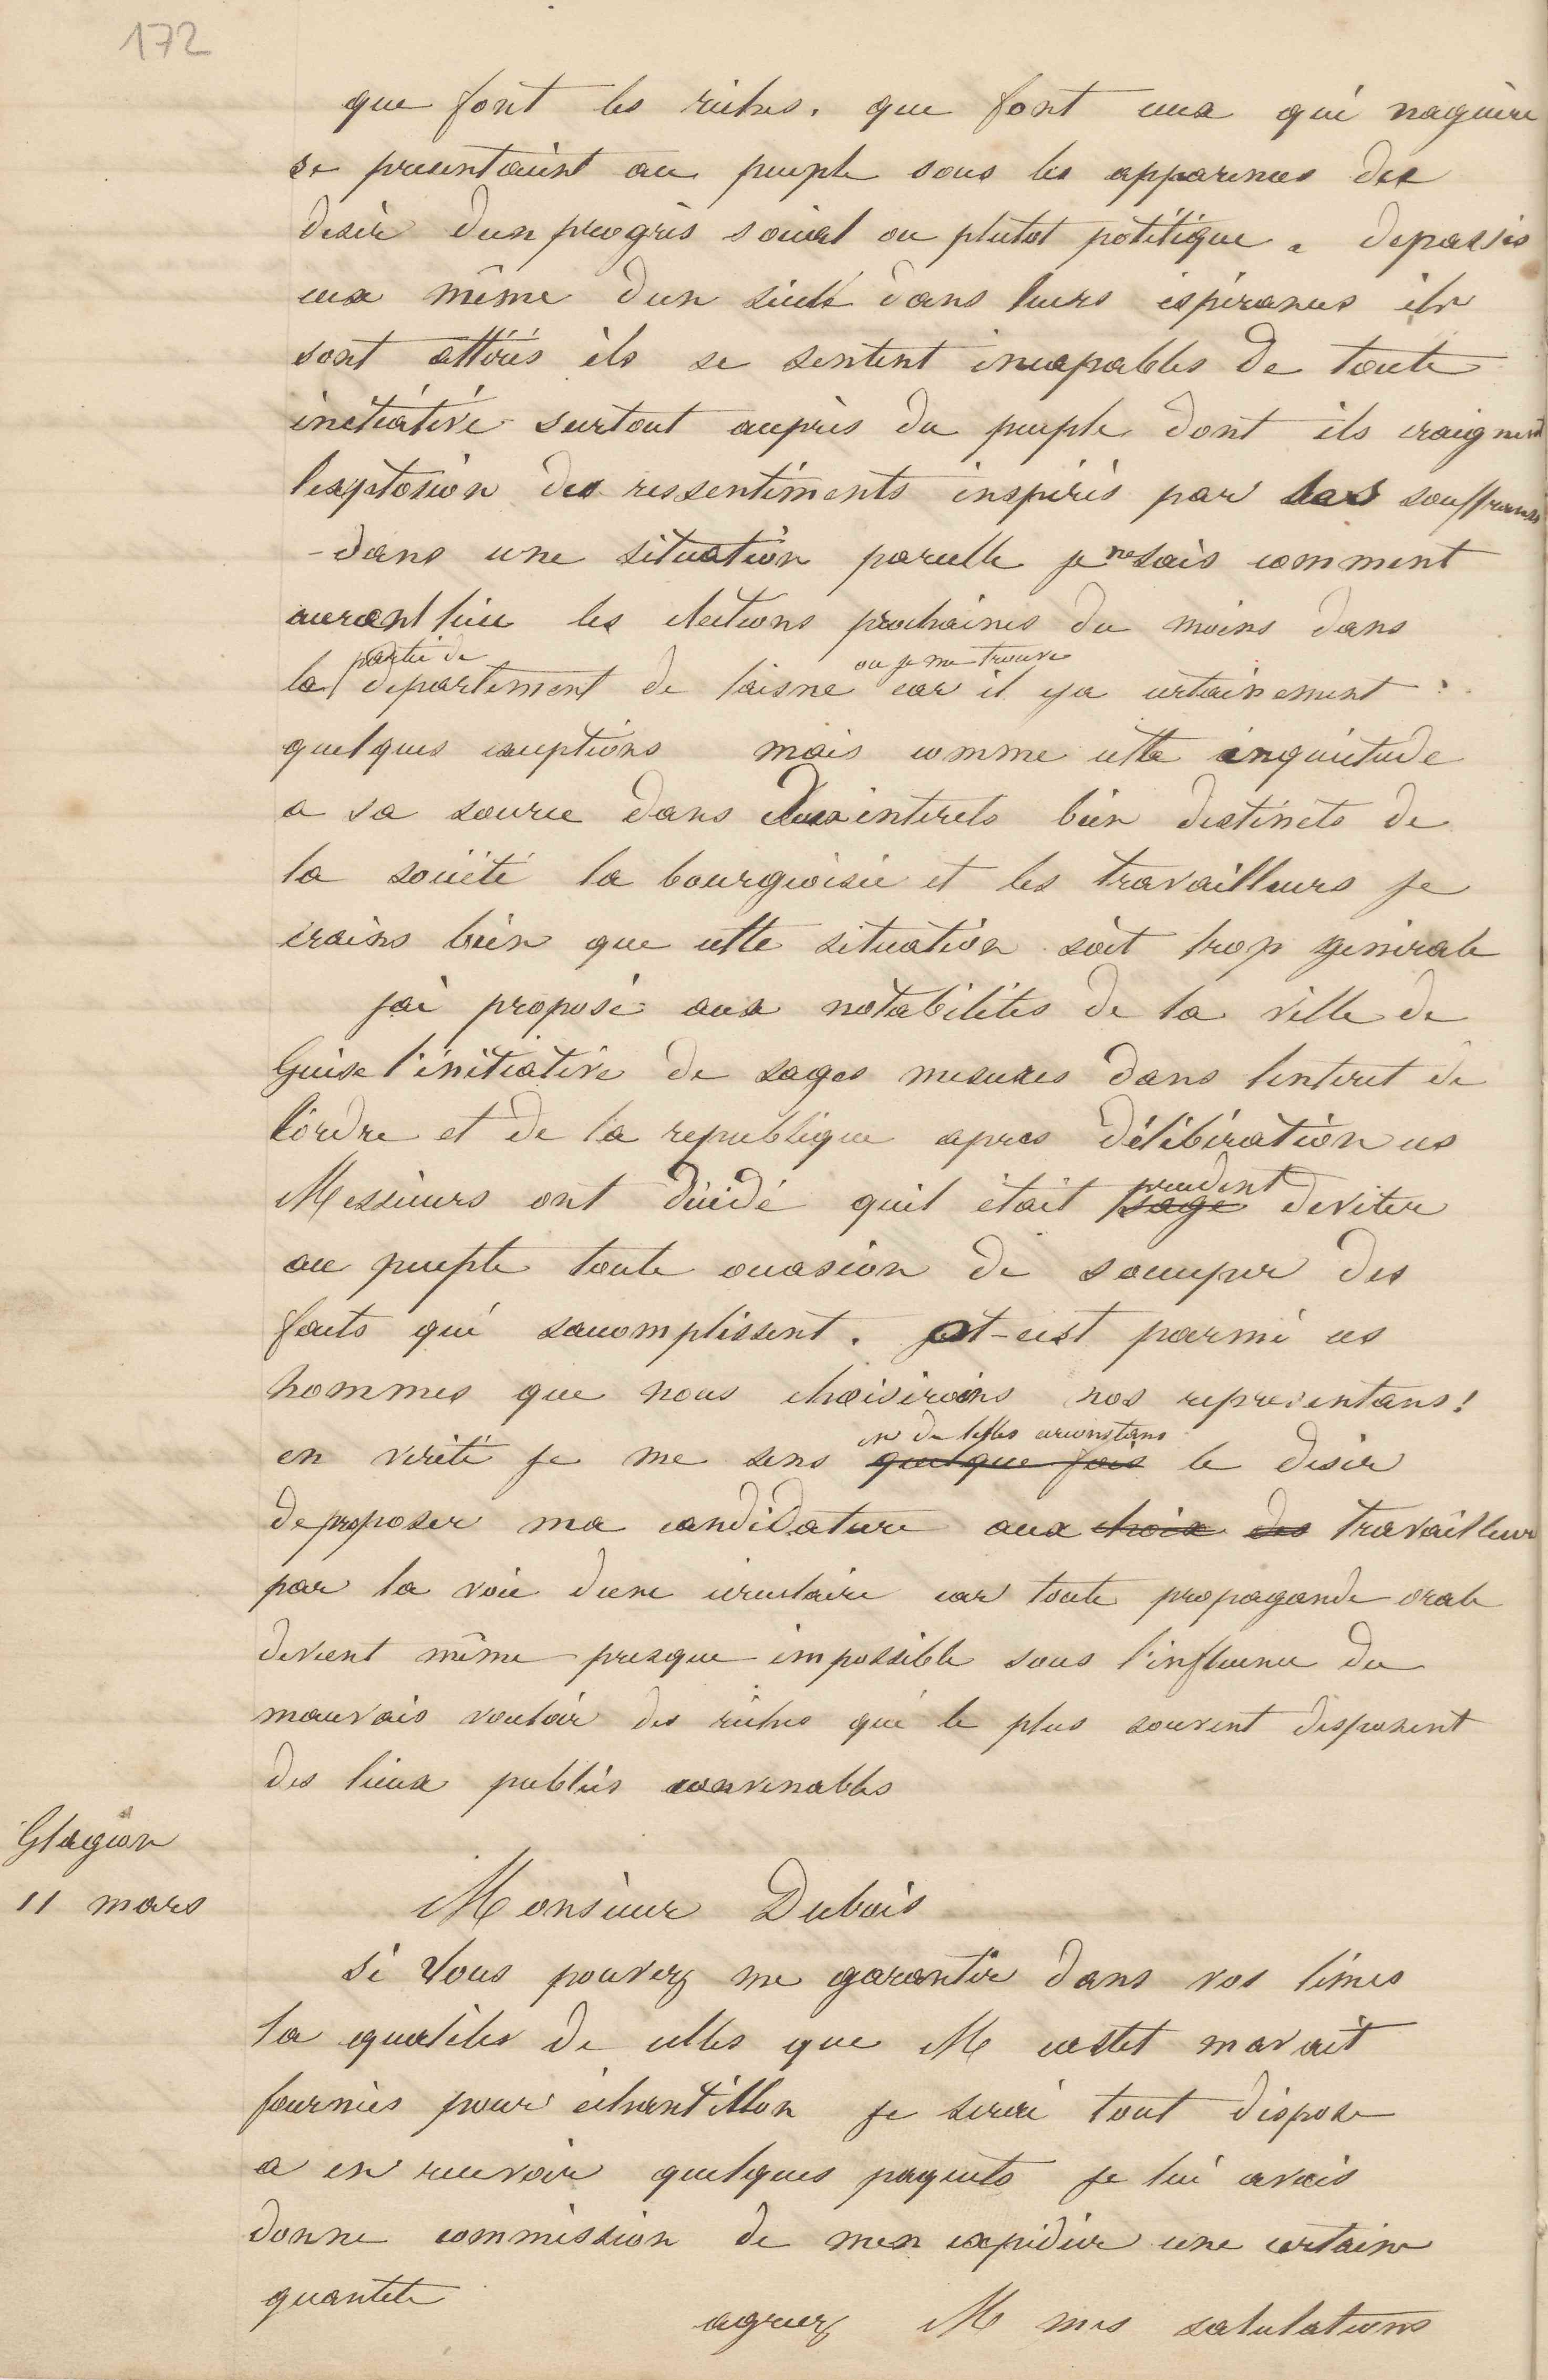 172
que font les riches. que font ceux qui naguère
se presentaient au peuple sous les apparences des
desir dun progrès social ou plutot politique. depassés
eux même dun siècle dans leurs espérances ils
sont attérés ils se sentent incapables de toute
initiative surtout auprès du peuple dont ils craignent
lexplosion des ressentiments inspirés par ses souffrances
- dans une situation pareille je ne sais comment
auront lieu les elections prochaines du moins dans
partie de ou je me trouve
la departement de laisne car il y a certainement
quelques exceptions mais comme cette inquietude
a sa source dans deux interets bien distincts de
la société la bourgeoisie et les travailleurs je
crains bien que cette situation soit trop generale
jai proposé aux notabilités de la ville de
Guise l'initiative de sages mesures dans linteret de
l'ordre et de la republique apres délibération ces
Messieurs ont décidé quil était sage prudent deviter
au peuple toute occasion de soccuper des
faits qui saccomplissent. et c'est parmi ces
hommes que nous choisirions nos representans!
en de telles circonstans
en vérité je me sens quelque fois le desir
de proposer ma candidature aux choix des travailleurs
par la voie dune circulaire car toute propagande orale
devient même presque impossible sous l'influence du
mauvais vouloir des riches qui le plus souvent disposent
des lieux publics convenables
Glageon
11 mars
Monsieur Dubois
si Vous pouvez me garantir dans vos limes
la qualités de celles que M castet mavait
fournies pour échantillon je serai tout dispose
a en recevoir quelques paquets je lui avais
donne commission de men expédier une certaine
quantete
agreez M mes salutations